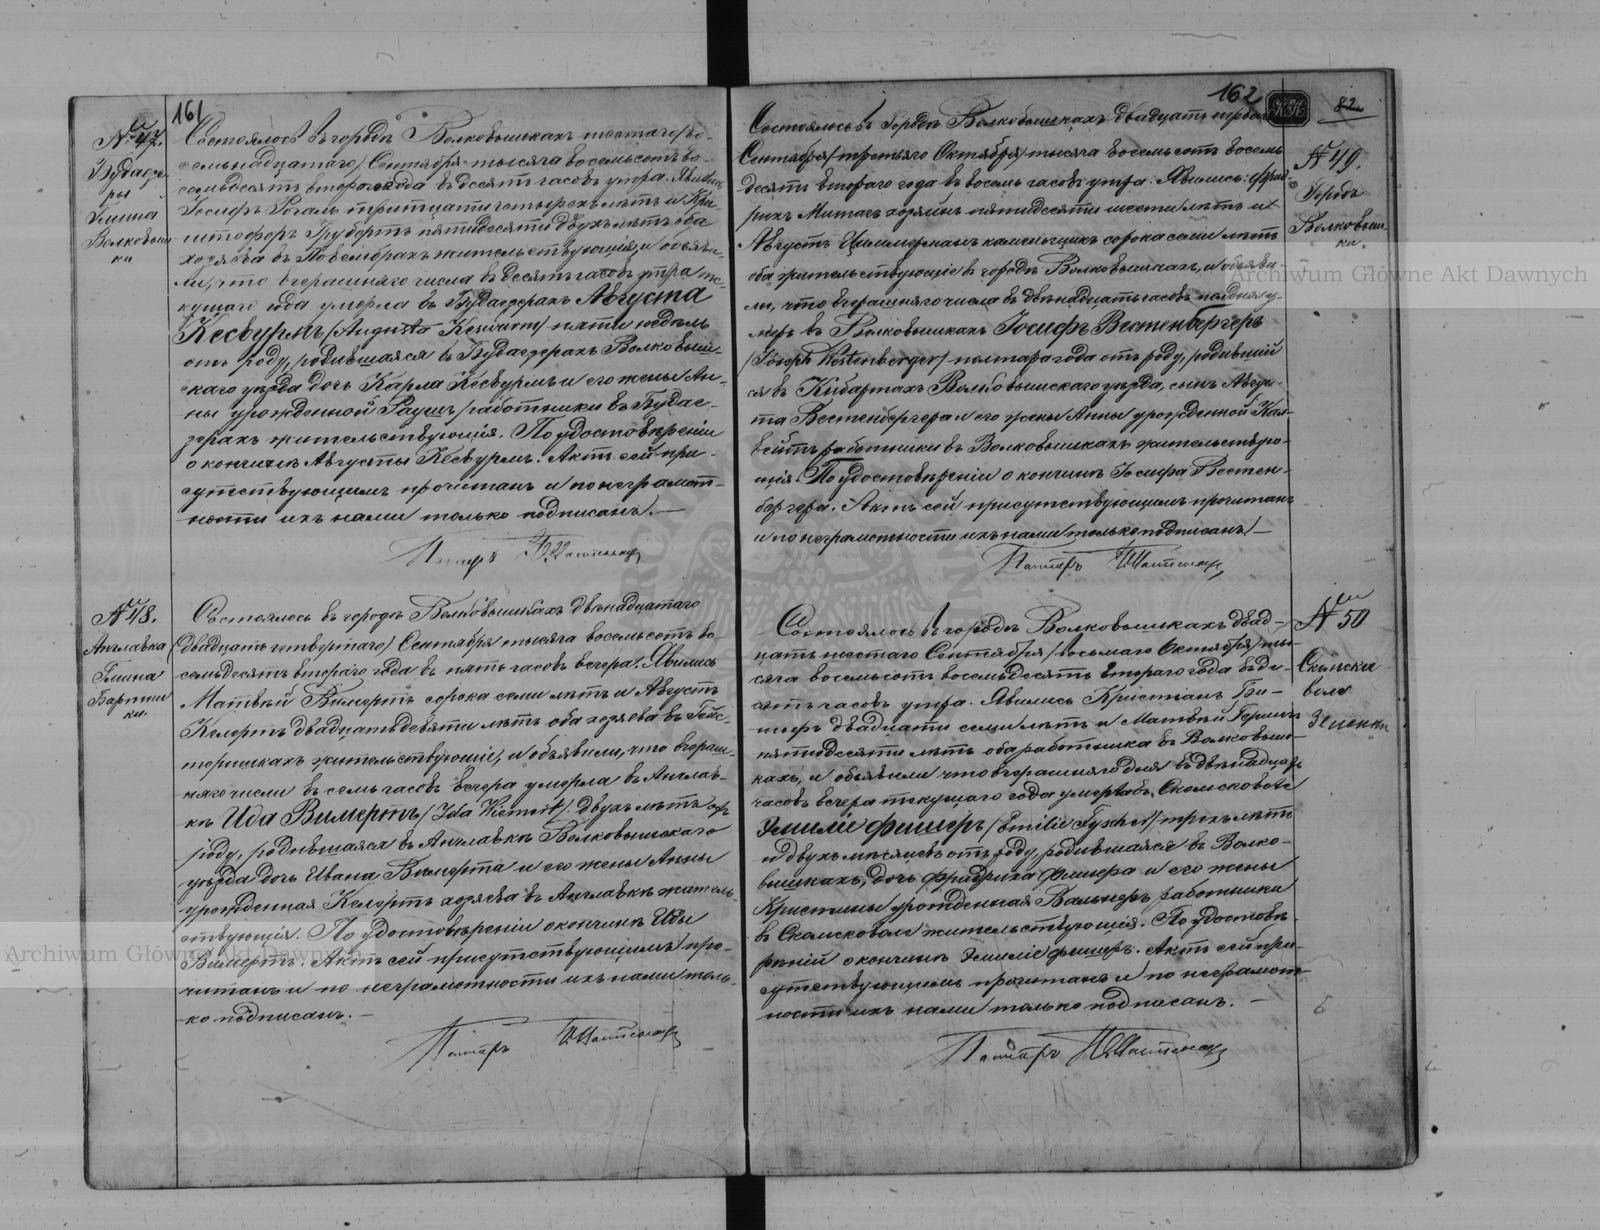 161
№ 47.
Будвезе-
ры
Гмина
Волковыш-
ки
Состоялось въ городѣ Волковышкахъ шестаго/во-
семьнадцатаго/ Сентября тысяча восемьсотъ во-
семьдесятъ втораго года въ десять часовъ утра. Явились
Іосифъ Рогаль тритцати четырехъ лѣтъ и Кри-
штофоръ Грубертъ пятидесяти двухъ лѣтъ оба
хозяева въ жительствующія, и объяви-
ли, что вчерашняго числа въ десять часовъ утра те-
кущаго года умерла въ Будвезерахъ Августа
Кесвурмъ /Augusta Keswurm/ пяти недѣль
отъ роду, родившаяся въ Будвезерахъ Волковыш-
скаго уѣзда дочь Карла Кесвурмъ и его жены Ан-
ны урожденной Раушъ /работники въ Будве-
зерахъ жительствующія. По удостовѣреніи
о кончинѣ Августы Кесвурмъ. Актъ сей при-
сутствующимъ прочитанъ и по неграмот-
ности ихъ нами только подписанъ. —
Пасторъ
№ 48.
Англавка
Гмина
Бартни-
ки.
Состоялось въ городѣ Волковышкахъ двѣнадцатаго
/двадцать четвертаго/ Сентября тысяча восемьсотъ во-
семьдесятъ втораго года въ пять часовъ вечера. Явились
Матвѣй Вимертъ сорока семи лѣтъ и Августъ
Келертъ двадцать девяти лѣтъ оба хозяева въ Гейс-
тришкахъ жительствующіе, и объявили, что вчераш-
няго числа въ семь часовъ вечера умерла въ Англав-
кѣ Ида Вимертъ /Ida Wiemert/ двухъ лѣтъ отъ
роду, родившаяся въ Англавкѣ Волковышскаго
уѣзда дочь Ивана Вимерта и его жены Анны
урожденная Келертъ хозяева въ Англавкѣ житель-
ствующія. По удостовѣреніи о кончинѣ Иды
Вимертъ. Актъ сей присутствующимъ про-
читанъ и по неграмотности ихъ нами толь-
ко подписанъ. —
Пасторъ
162
82
№ 49.
Городъ
Волковыш-
ки.
Состоялось въ городѣ Волковышкахъ двадцать перваго
Сентября/третьяго Октября/ тысяча восемьсотъ восемь-
десятъ втораго года въ восемь часовъ утра. Явились: Фрид-
рихъ Митачъ хозяинъ пятидесяти шести лѣтъ и
Августъ Циммерманъ каменьщикъ сорока семи лѣтъ
оба жительствующіе въ городѣ Волковышкахъ, и объяви-
ли, что вчерашняго числа въ двѣнадцать часовъ полдня у-
меръ въ Волковышкахъ Іосифъ Вестенбергеръ
/Joseph Westenberger/ полтара года отъ роду, родившій-
ся въ Кибартахъ Волковышскаго уѣзда, сынъ Авгус-
та Вестенбергера и его жены Анны урожденной Кал-
вейтъ работники въ Волковышкахъ жительствую-
щія. По удостовѣреніи о кончинѣ Іосифа Вестен-
бергера. Актъ сей присутствующимъ прочитанъ
и по неграмотности ихъ нами только подписанъ. —
Пасторъ
№ 50
Скамско-
воля
Зеленки
Состоялось въ городѣ Волковышкахъ двад-
цать шестаго Сентября /восьмаго Октября/ ты-
сяча восемьсотъ восемьдесятъ втораго года въ де-
сять часовъ утра. Явились Кристіанъ Ви-
двадцати семи лѣтъ и Матвѣй
пятидесяти лѣтъ оба работника въ Волковыш-
кахъ, и объявили что вчерашняго дня въ двѣнадцать
часовъ вечера текущаго года умерла въ Скамсковоле
Эмиліе Фишеръ /Emilie Fyscher/ трехъ лѣтъ
и двухъ мѣсяцевъ отъ роду, родившаяся въ Волко-
вышкахъ, дочь Фридриха Фишера и его жены
Кристины урожденная Вальнеръ работники
въ Скамсковоле жительствующія. По удостовѣ-
реніи о кончинѣ Эмиліе Фишеръ. Актъ сей при-
сутствующимъ прочитанъ и по неграмот-
ности ихъ нами только подписанъ. —
Пасторъ
Archiwum Główne Akt Dawnych
Archiwum Główne Akt Dawnych